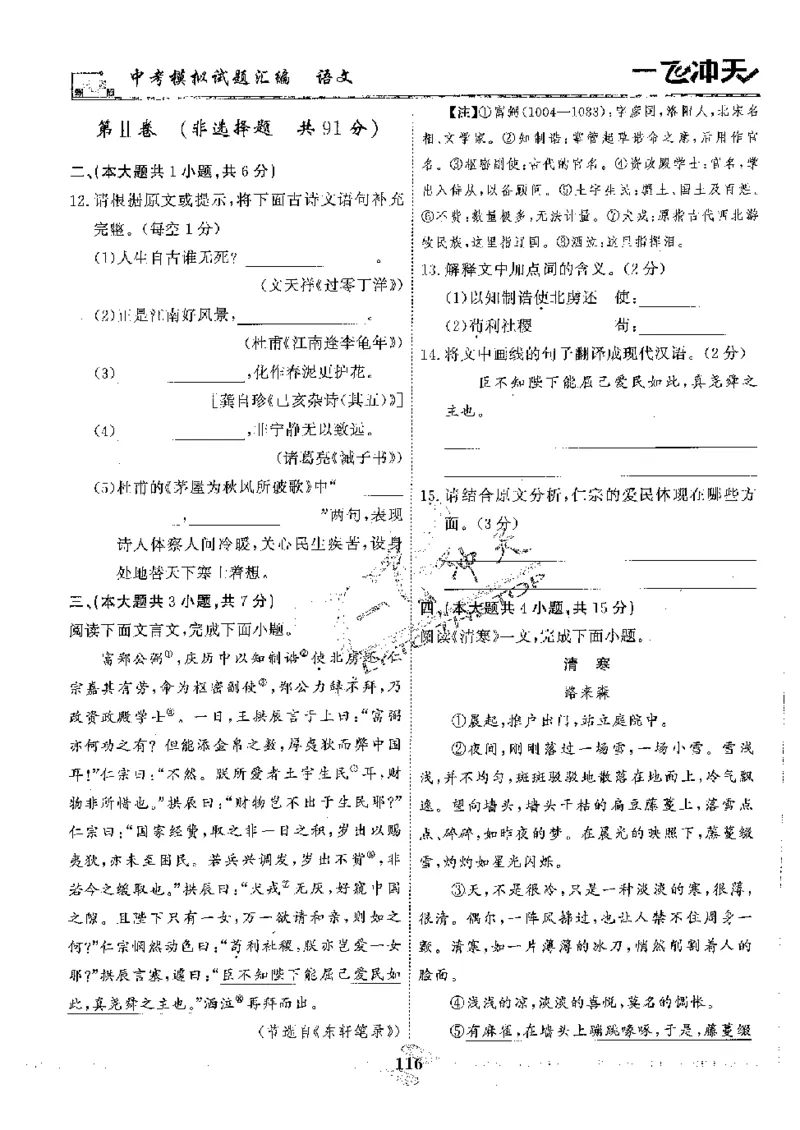 中考模拟试题汇编 语文
一飞冲天
第Ⅱ卷 (非选择题 共91分)
二、(本大题共1小题,共6分)
12.请根据原文或提示,将下面古诗文语句补充
完整。(每空1分)
(1)人生自古谁无死? 。
(文天祥《过零丁洋》)
(2)正是江南好风景, 。
(杜甫《江南逢李龟年》)
(3) ,化作春泥更护花。
[龚自珍《己亥杂诗(其五)》]
(4) ,非宁静无以致远。
(诸葛亮《诫子书》)
(5)杜甫的《茅屋为秋风所破歌》中“
, ”两句,表现
诗人体察人间冷暖,关心民生疾苦,设身
处地替天下寒士着想。
三、(本大题共3小题,共7分)
阅读下面文言文,完成下面小题。
富郑公弼①,庆历中以知制诰②使北虏还,仁
宗嘉其有劳,命为枢密副使③,郑公力辞不拜,乃
改资政殿学士④。一日,王拱辰言于上曰:“富弼
亦何功之有? 但能添金帛之数,厚夷狄而弊中国
耳!”仁宗曰:“不然。朕所爱者土宇生民⑤耳,财
物非所惜也。”拱辰曰:“财物岂不出于生民耶?”
仁宗曰:“国家经费,取之非一日之积,岁出以赐
夷狄,亦未至困民。若兵兴调发,岁出不赀⑥,非
若今之缓取也。”拱辰曰:“犬戎⑦无厌,好窥中国
之隙。且陛下只有一女,万一欲请和亲,则如之
何?”仁宗悯然动色曰:“苟利社稷,朕亦岂爱一女
耶?”拱辰言塞,遽曰:“臣不知陛下能屈己爱民如
此,真尧舜之主也。”洒泣⑧再拜而出。
(节选自《东轩笔录》)
【注】①富弼(1004—1083):字彦国,洛阳人,北宋名
相、文学家。②知制诰:掌管起草诰命之意,后用作官
名。③枢密副使:古代的官名。④资政殿学士:官名,学
出入侍从,以备顾问。⑤土宇生民:疆土、国土及百姓。
⑥不赀:数量极多,无法计量。⑦犬戎:原指古代西北游
牧民族,这里指辽国。⑧洒泣:这里指挥泪。
13.解释文中加点词的含义。(2分)
(1)以知制诰使北虏还 使:
(2)苟利社稷 苟:
14.将文中画线的句子翻译成现代汉语。(2分)
臣不知陛下能屈己爱民如此,真尧舜之
主也。
15.请结合原文分析,仁宗的爱民体现在哪些方
面。(3分)
四、(本大题共4小题,共15分)
阅读《清寒》一文,完成下面小题。
清 寒
路来森
①晨起,推户出门,站立庭院中。
②夜间,刚刚落过一场雪,一场小雪。雪浅
浅,并不均匀,斑斑驳驳地散落在地面上,冷气飘
逸。望向墙头,墙头干枯的扁豆藤蔓上,落雪点
点、碎碎,如昨夜的梦。在晨光的映照下,藤蔓缀
雪,灼灼如星光闪烁。
③天,不是很冷,只是一种淡淡的寒,很薄,
很清。偶尔,一阵风掠过,也让人禁不住周身一
颤。清寒,如一片薄薄的冰刀,悄然削割着人的
脸面。
④浅浅的凉,淡淡的喜悦,莫名的惆怅。
⑤有麻雀,在墙头上蹦跳啄啄,于是,藤蔓缀
116